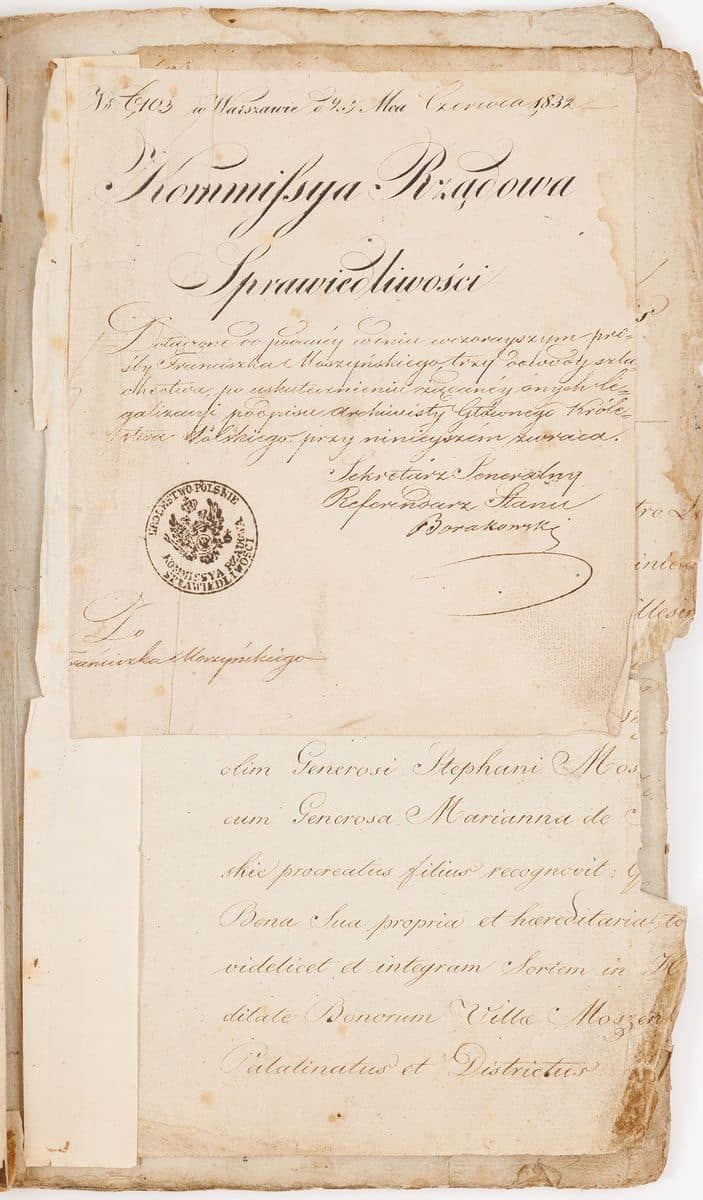 Nr 6103 w Warszawie d 25 Mca Czerwca 1832
Kommissya Rządowa
Sprawiedliwości
Dołączone do podaney w dniu wczorayszym proś-
by Franciszka Moszyńskiego, trzy dowody szla-
chectwa, po uskutecznieniu żądaney onych le-
galizacyi podpisu Archiwisty Głównego Króle-
stwa Polskiego przy ninieyszém zwraca.
Sekretarz Jeneralny
Referendarz Stanu
Borakowski
KRÓLESTWO POLSKIE
KOMMISSYA RZĄDOWA
SPRAWIEDLIWOŚCI
Do
Franciszka Moszyńskiego
olim Generosi Stephani Mos
cum Generosa Marianna de
skie procreatus filius recognovit:
Bona Sua propria et hæreditaria, to
videlicet et integram Sortem in H
ditate Bonorum Villæ Moszen
Palatinatus et Districtus